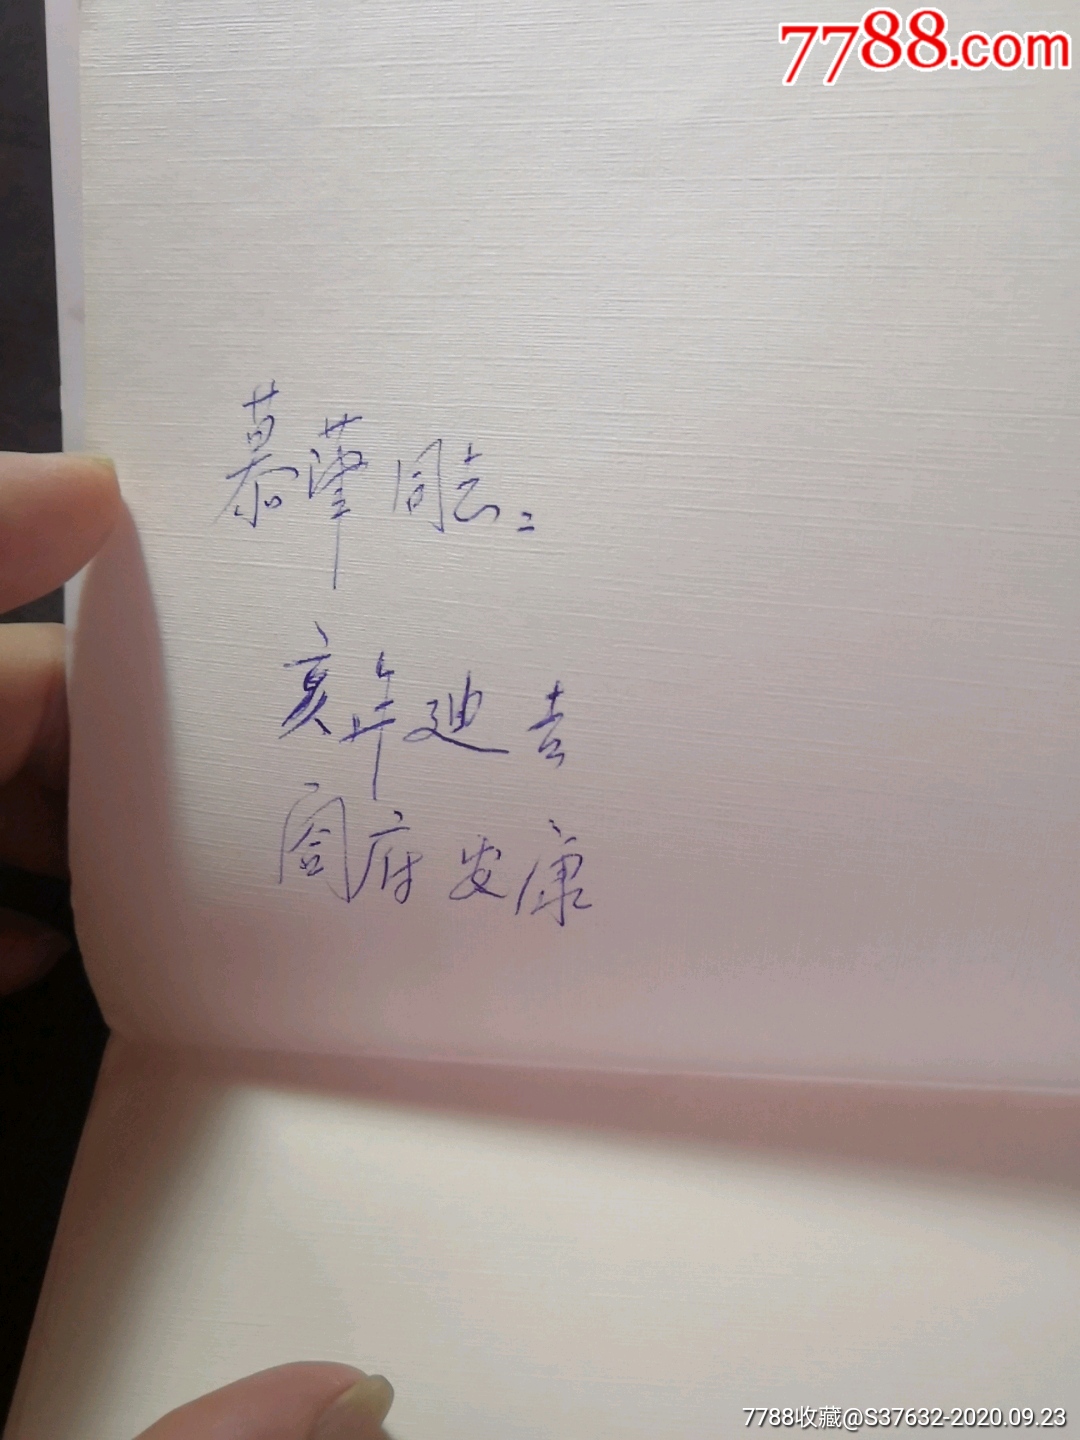 7788.com
慕萍同志：
亥年迪吉
阖府安康
7788收藏@S37632-2020.09.23